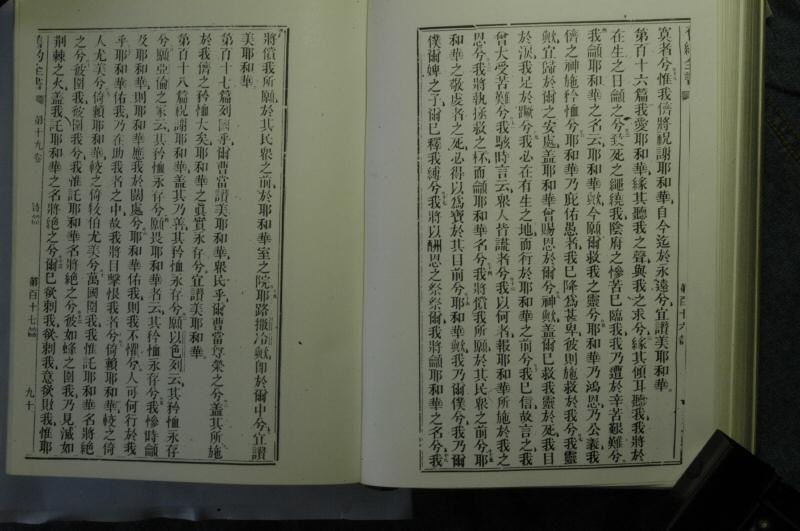 舊約全書
第百十六篇
寞者兮惟我儕將祝謝耶和華自今迄於永遠兮宜讚美耶和華
第百十六篇我愛耶和華緣其聽我之聲與我之求兮緣其傾耳聽我我將於
在生之日龥之兮死之繩繞我陰府之慘苦已臨我我乃遭於辛苦艱難兮
我龥耶和華之名云耶和華歟今願爾救我之靈兮耶和華乃鴻恩乃公義我
儕之神施矜恤兮耶和華乃庇佑愚者我已降為甚卑彼則施救於我兮我靈
歟宜歸於爾之安處蓋耶和華曾賜恩於爾兮神歟蓋爾已救我靈於死我目
於淚我足於蹶兮我必在有生之地而行於耶和華之前兮我已信故言之我
曾大受苦難兮我駭時言云眾人皆謊者兮我以何者報耶和華所施於我之
恩兮我將執拯救之杯而龥耶和華名兮我將償我所願於其民眾之前兮耶
和華之敬虔者之死必得以為寶於其目前兮耶和華歟我乃爾僕兮我乃爾
僕爾婢之子爾已釋我縛兮我將以酬恩之祭祭爾我將龥耶和華之名兮我
將償我所願於其民眾之前於耶和華室之院耶路撒冷歟即於爾中兮宜讚
美耶和華
第百十七篇列國乎爾曹當讚美耶和華眾民乎爾曹當尊榮之兮蓋其所施
於我儕之矜恤大矣耶和華之真實永存兮宜讚美耶和華
第百十八篇祝謝耶和華蓋其乃善其矜恤永存兮願以色列云其矜恤永存
兮願亞倫之家云其矜恤永存兮願畏耶和華者云其矜恤永存兮我慘時龥
及耶和華則耶和華應我於闊處兮耶和華佑我則我不懼兮人可何行於我
乎耶和華佑我乃在助我者之中故我將目擊恨我者兮倚賴耶和華較之倚
人尤美兮倚賴耶和華較之倚牧伯尤美兮萬國圍我我惟託耶和華名將絕
之兮彼圍我彼圍我兮我惟託耶和華名將絕之兮彼如蜂之圍我乃見滅如
荊棘之火蓋我託耶和華之名將絕之兮爾已欲刺我欲刺我意欲敗我惟耶
舊約全書 第十九卷 诗篇 第百十七篇 九十